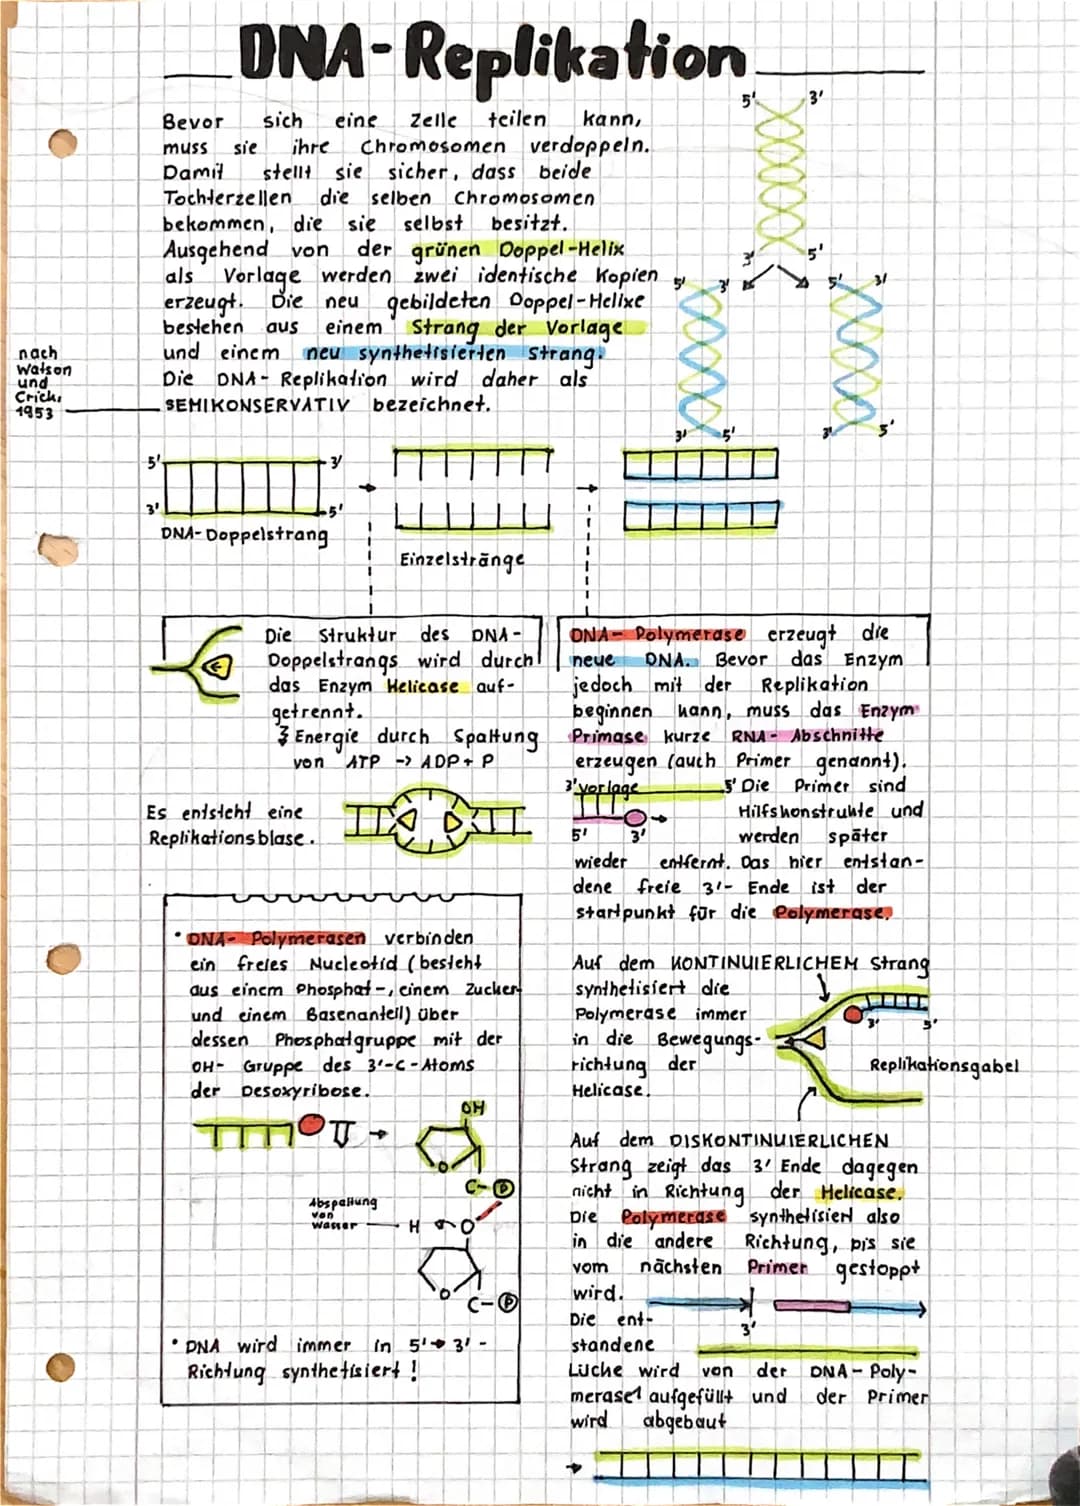 DNA-Replikation
5' 3'
Bevor sich eine Zelle teilen kann,
muss sie ihre Chromosomen verdoppeln.
Damit stellt sie sicher, dass beide
Tochterzellen die selben Chromosomen
bekommen, die sie selbst besitzt.
Ausgehend von der grünen Doppel-Helix
als Vorlage werden zwei identische Kopien
erzeugt. Die neu gebildeten Doppel-Helixe
bestehen aus einem Strang der Vorlage
und einem neu synthetisierten Strang.
Die DNA-Replikation wird daher als
SEMIKONSERVATIV bezeichnet.
nach
Watson
und
Crick,
1953
3' 5'
5' 3' 5' 3'
3' 5' 3' 5'
5' 3'
3' 5'
DNA-Doppelstrang
Einzelstränge
Die Struktur des DNA-
Doppelstrangs wird durch
das Enzym Helicase auf-
getrennt.
Energie durch Spaltung
von ATP -> ADP + P
Es entsteht eine
Replikationsblase.
• DNA-Polymerasen verbinden
ein freies Nucleotid (besteht
aus einem Phosphat-, einem Zucker
und einem Basenanteil) über
dessen Phosphatgruppe mit der
OH-Gruppe des 3'-C-Atoms
der Desoxyribose.
OH
O
C-P
Abspaltung
von
Wasser
H O
O
C-P
• DNA wird immer in 5'→3'-
Richtung synthetisiert!
DNA-Polymerase erzeugt die
neue DNA. Bevor das Enzym
jedoch mit der Replikation
beginnen kann, muss das Enzym
Primase kurze RNA-Abschnitte
erzeugen (auch Primer genannt).
3' Vorlage 5' Die Primer sind
Hilfskonstrukte und
5' 3' werden später
wieder entfernt. Das hier entstan-
dene freie 3'-Ende ist der
startpunkt für die Polymerase.
Auf dem KONTINUIERLICHEM Strang
synthetisiert die
Polymerase immer
in die Bewegungs-
richtung der
Helicase.
3' 5'
Replikationsgabel
Auf dem DISKONTINUIERLICHEN
Strang zeigt das 3' Ende dagegen
nicht in Richtung der Helicase.
Die Polymerase synthetisiert also
in die andere Richtung, bis sie
vom nächsten Primer gestoppt
wird.
3'
Die ent-
standene
Lücke wird von der DNA-Poly-
merase1 aufgefüllt und der Primer
wird abgebaut